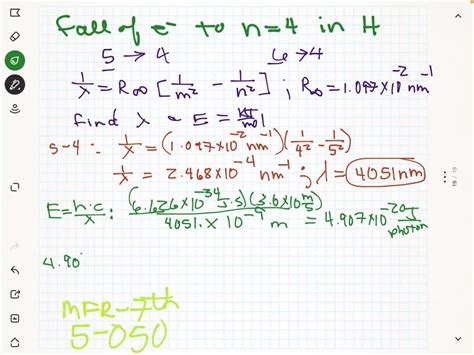 Fall of e⁻ to n=4 in H
5 → 4    6 → 4
1/λ = R∞ [1/m² - 1/n²] ; R∞ = 1.097×10⁻² nm⁻¹
find λ ~ E = kJ/mol
5-4: 1/λ = (1.097×10⁻² nm⁻¹)(1/4² - 1/5²)
1/λ = 2.468×10⁻⁴ nm⁻¹ ; λ = 4051 nm
E = h·c/λ : (6.626×10⁻³⁴ J·s)(3.0×10 m/s) / 4051. × 10⁻⁹ m = 4.907×10⁻²⁰ J/photon
4.90
MFR-7th
5-050